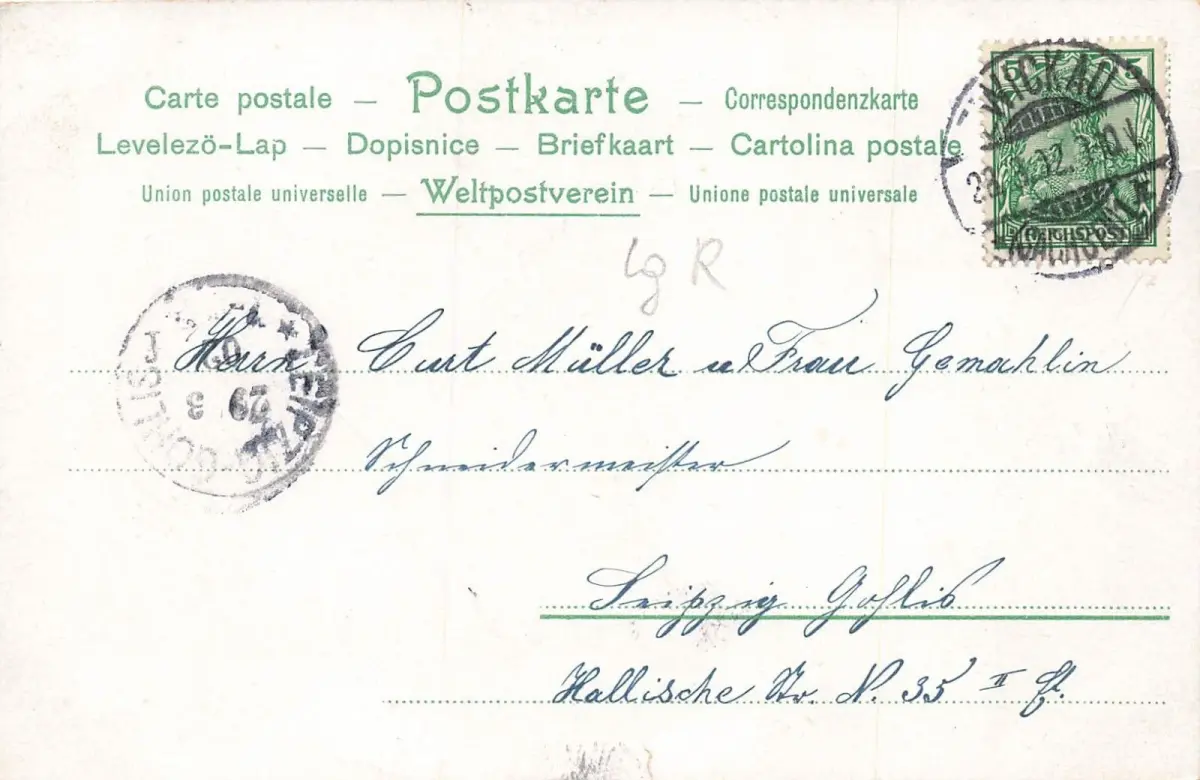 Carte postale — Postkarte — Correspondenzkarte
Levelezö-Lap — Dopisnice — Briefkaart — Cartolina postale
Union postale universelle — Weltpostverein — Unione postale universale
5 5
REICHSPOST
ZWICKAU
LEIPZIG-GOHLIS
29 3
Herrn Curt Müller u Frau Gemahlin
Schneidermeister
Leipzig Gohlis
Hallische Str. N. 35 II